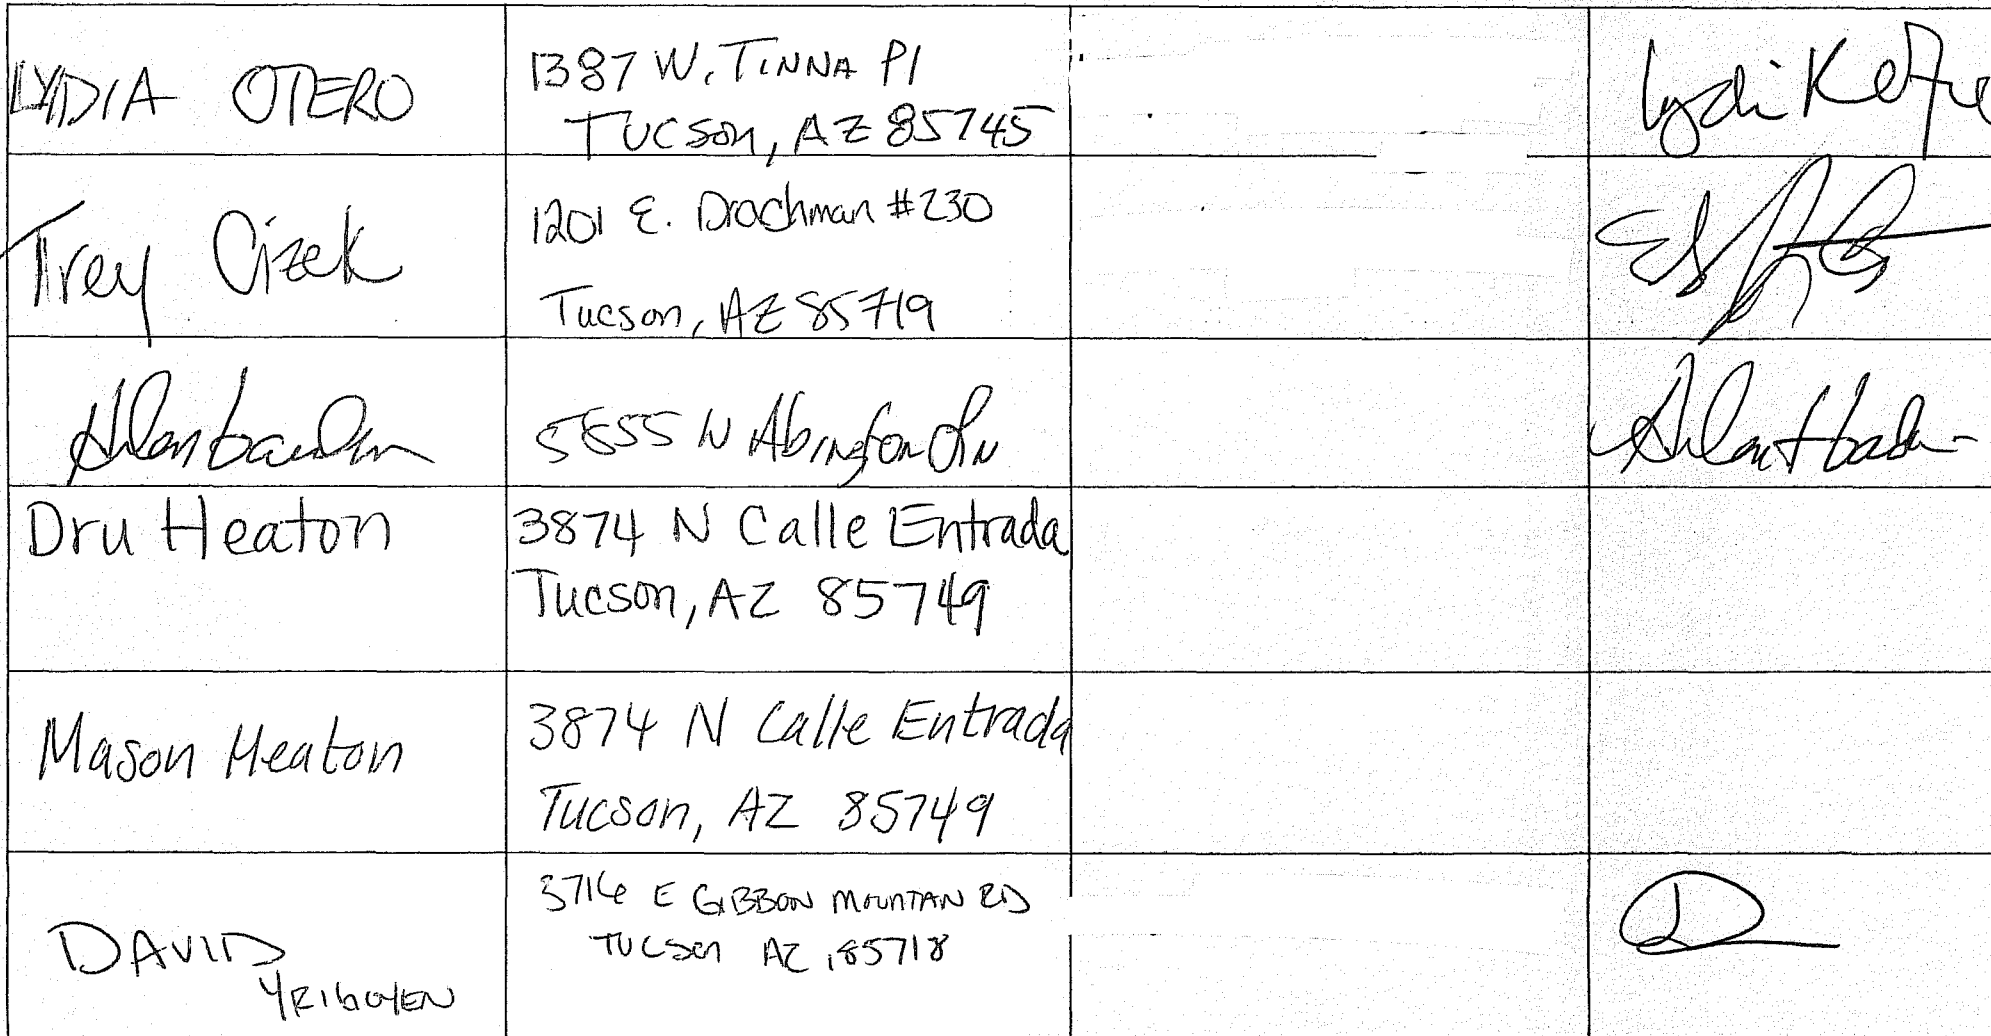 LYDIA OTERO
1387 W. TINNA Pl
TUCSON, AZ 85745
Trey Cizek
1201 E. Drachman #230
Tucson, AZ 85719
5655 N Abington Ln
Dru Heaton
3874 N Calle Entrada
Tucson, AZ 85749
Mason Heaton
3874 N Calle Entrada
Tucson, AZ 85749
DAVID
YRIGOYEN
3716 E GIBBON MOUNTAN RD
TUCSON AZ, 85718